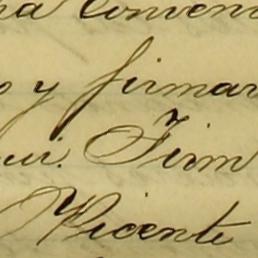 na Conveni
o y firmar
ui. Firm
Vicente